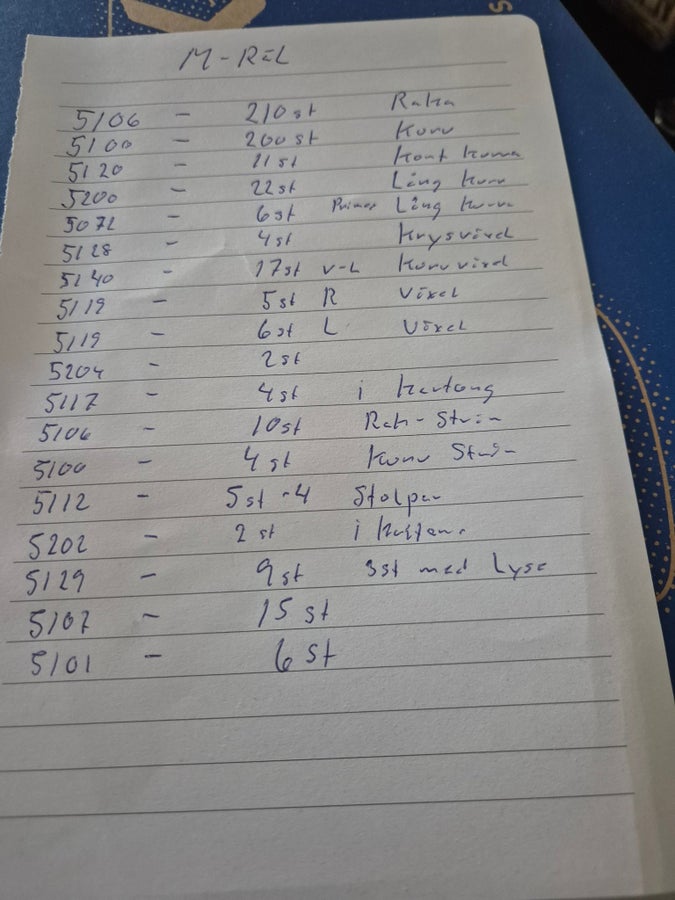 M-Räl
5106 - 210 st Raka
5100 - 200 st Kurv
5120 - 11 st Kort Kurva
5200 - 22 st Lång Kurv
5072 - 6 st Primex Lång Kurva
5128 - 4 st Krysväxel
5140 - 17 st V-L Kurv växel
5119 - 5 st R Växel
5119 - 6 st L Växel
5204 - 2 st
5117 - 4 st i Kartong
5106 - 10 st Rak-
5100 - 4 st Kurv
5112 - 5 st -4 Stolpar
5202 - 2 st i
5129 - 9 st 3st med Lyse
5107 - 15 st
5101 - 6 st